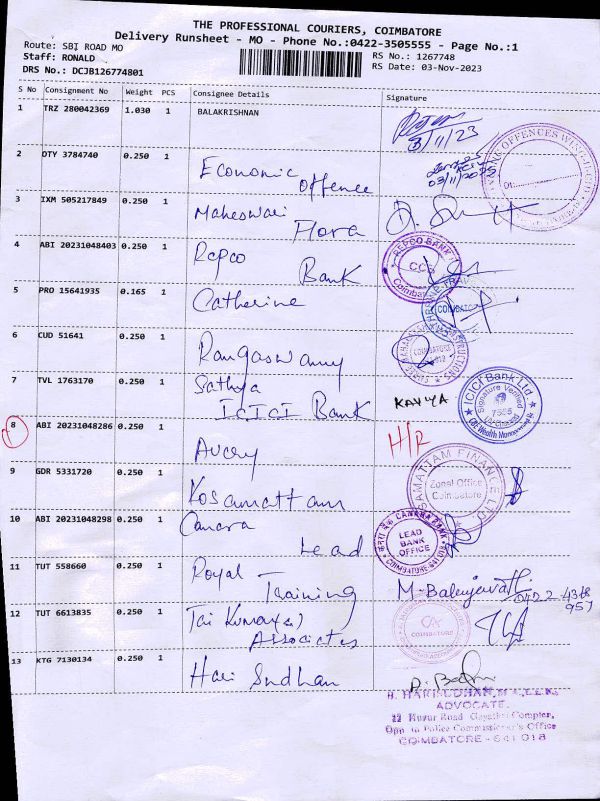 THE PROFESSIONAL COURIERS, COIMBATORE
Delivery Runsheet - MO - Phone No.:0422-3505555 - Page No.:1
Route: SBI ROAD MO
Staff: RONALD
DRS No.: DCJB126774801
RS No.: 1267748
RS Date: 03-Nov-2023
S No Consignment No Weight PCS Consignee Details Signature
1 TRZ 280042369 1.030 1 BALAKRISHNAN
3/11/23
2 OTY 3784740 0.250 1 Economic Offence
03/11/2023
3 IXM 505217849 0.250 1 Maheswari Flora
4 ABI 20231048403 0.250 1 Repco Bank
REPCO BANK
CCS
5 PRO 15641935 0.165 1 Catherine
COIMBATORE
6 CUD 51641 0.250 1 Rangaswamy
7 TVL 1763170 0.250 1 Sathya ICICI Bank KAVYA
ICICI Bank Ltd
Signature Verified
8 ABI 20231048286 0.250 1 Avery H/R
9 GDR 5331720 0.250 1 Kosamattam
KOSAMATTAM FINANCE
Zonal Office
Coimbatore
10 ABI 20231048298 0.250 1 Canara Lead
CANARA BANK
LEAD
BANK
OFFICE
COIMBATORE
11 TUT 558660 0.250 1 Royal Training
12 TUT 6613835 0.250 1 Associates
COIMBATORE
13 KTG 7130134 0.250 1 Hari Sudhan
ADVOCATE,
Opp to Police Commissioner's Office
COIMBATORE - 641 018